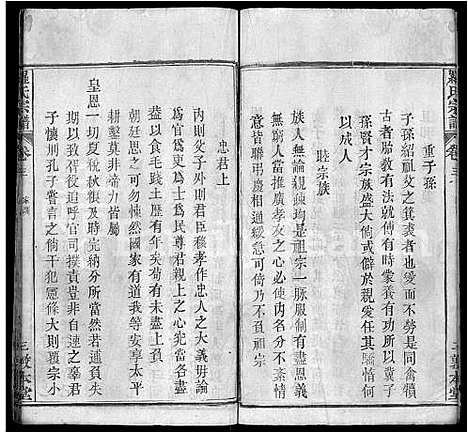 羅氏宗譜
卷三
重子孫
子孫紹祖父之箕裘者也愛而不勞是同禽犢
古者敬教有法就傅有時蒙養有功所以多賢子
孫賢才宗族盛大倘或僻於親愛任其驕惰何
以成人
睦宗族
族人無論親疎均是祖宗一脉服制有盡恩義
無窮人當推廣孝友之心必使內各分不紊情
意皆聯弔慶相通緩急可倚乃不負親
忠君上
內則父子外則君臣移孝作忠人之大義毋論
官為吏為士為民尊君親上之心先當大
益以食毛踐土歷有年矣苟有未盡上負
朝廷恩之何可悚然國家有道我等安享太平
耕鑿莫非帝力皆屬
皇恩一切夏稅秋糧及時完納分所當然若逋負失
期以致役追呼官司撲責豈非自速之辜君
子懷刑孔子有言之倘干犯憲條大則覆宗小
羅氏宗譜
卷三
三
敦本堂